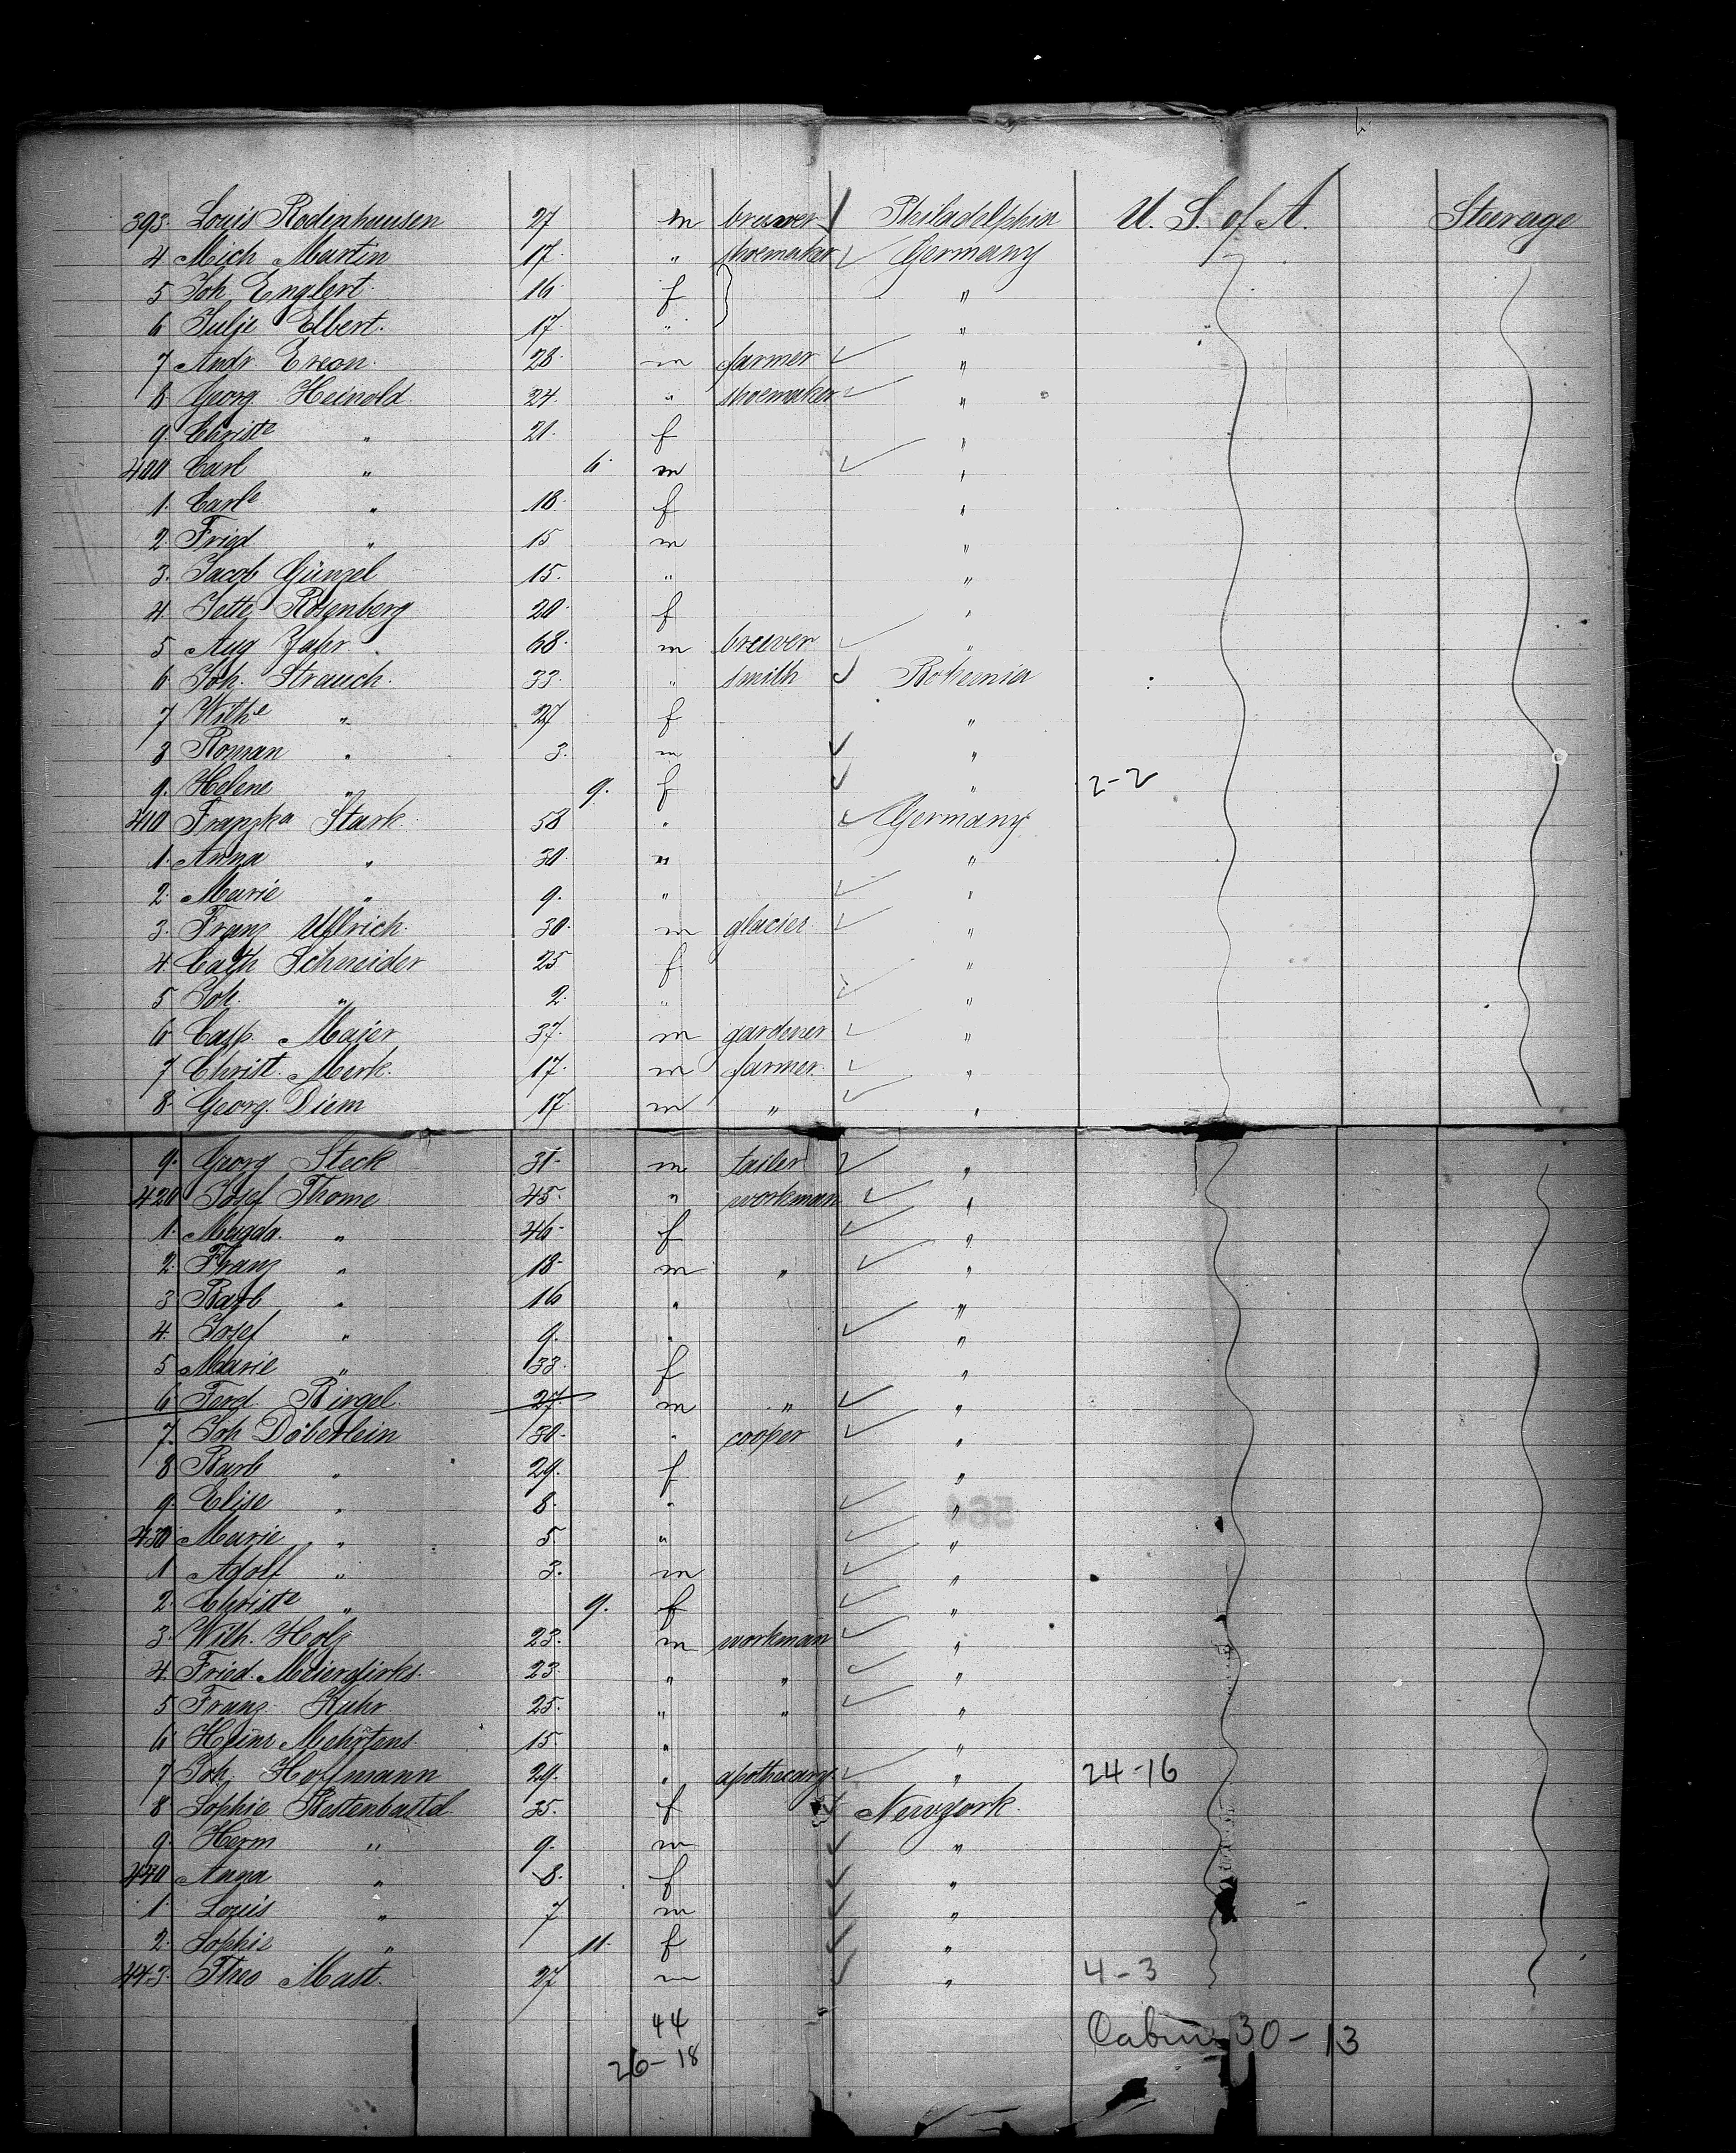 393. Louis Rodenhausen 27 m brewer Philadelphia U. S. of A. Steerage
4 Mich Martin 17. " shoemaker Germany
5 Joh. Englert. 16 f "
6 Julie Elbert. 17. " "
7 Andr. 28. m farmer "
8 Georg Heinold 24. " shoemaker "
9. Christe " 21. f "
400 Carl " 6. m "
1. Carle " 18. f "
2. Fried. " 15 m "
3. Jacob Günzel 15. " "
4. Jette Rosenberg 20. f "
5 Aug Zahr. 68. m brewer "
6. Joh. Strauch. 33. " smith Bohemia
7 Wilhe " 27 f "
8 Roman " 3. m "
9. Helene " 9. f " 2-2
410 Franzka Stark. 58 " Germany
1. Anna " 30. " "
2. Marie " 9. " "
3. Franz Ullrich. 30. m glacier "
4. Cath Schneider 25 f "
5 Joh. " 2. " "
6 Casp. Maier 37. m gardener "
7 Christ. Merk. 17. m farmer. "
8. Georg. Diem 17 m " "
9. Georg Steck 31. m tailer "
420 Josef Thome 45. " workman "
1. Magda. " 46. f "
2. Franz " 18. m " "
3 Barb " 16 " "
4. Josef " 9. " "
5 Marie " 33. f "
6 Ferd. Birgel. 27. m " "
7. Joh Döberlein 30. " cooper "
8 Barb " 29. f "
9. Elise " 8. " "
430 Marie " 5. " "
1 Adolf " 3. m "
2. Christe " 9. f "
3. Wilh. Holz 23. m workman "
4. Fried. Meierdirks. 23. " " "
5 Franz. Kuhr. 25. " " "
6 Heinr Mehrtens. 15. " "
7 Joh. Hoffmann 29. " apothecary. " 24-16
8 Sophie 35. f Newyork.
9. Herm " 9. m "
440 Anna " 8. f "
1. Louis " 7 m "
2. Sophie " 11. f "
443. Theo Mast. 27 m " 4-3
44 Cabin 30-13
26-18